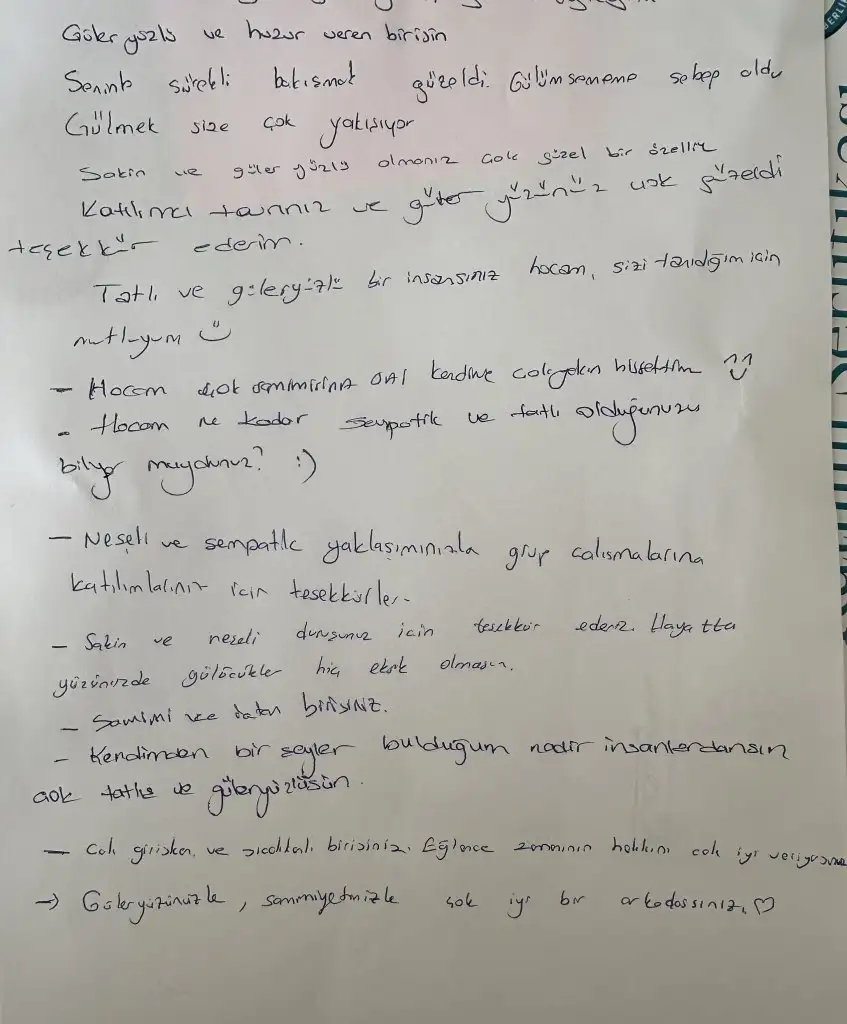 Güler yüzlü ve huzur veren birisin
Seninle sürekli bakışmak güzeldi. Gülümsememe sebep oldu
Gülmek size çok yakışıyor
Sakin ve güler yüzlü olmanız çok güzel bir özellik
Katılımcı tavrınız ve güler yüzünüz çok güzeldi
teşekkür ederim.
Tatlı ve güleryüzlü bir insansınız hocam, sizi tanıdığım için
mutluyum
- Hocam çok kendime çok yakın hissettim
- Hocam ne kadar sempatik ve tatlı olduğunuzu
biliyor muydunuz? :)
- Neşeli ve sempatik yaklaşımınızla grup çalışmalarına
katılımlarınız için teşekkürler.
- Sakin ve neşeli duruşunuz için teşekkür ederiz. Hayatta
yüzünüzde gülücükler hiç eksik olmasın.
- Samimi ve birisiniz.
- Kendimden bir şeyler bulduğum nadir insanlardansın
çok tatlı ve güleryüzlüsün.
- Çok girişken, ve sıcakkanlı birisiniz. Eğlence zamanının hakkını çok iyi veriyorsunuz
→ Güleryüzünüzle, samimiyetinizle çok iyi bir arkadaşsınız. ♡